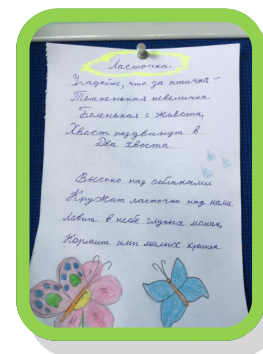 Ласточка.
Угадайте, что за птичка –
Темненькая невеличка.
Беленькая с живота,
Хвост раздвинут в
два хвоста.
Высоко над облаками
Кружит ласточка над нами
Ловит в небе глупых мошек,
Кормит ими милых крошек